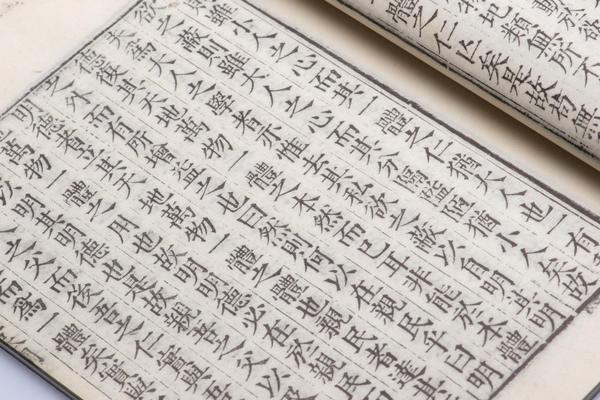 動於欲
類血所不
地
體之仁亾矣是故苟無
雖小人之心而其一體之仁猶大人也一有
欲之蔽則雖大人之心而其分隔隘陋猶小人矣故
夫爲大人之學者亦惟去其私欲之蔽以自明其明
德復其天地萬物一體之本然而已耳非能於本體
之外而有所增益之也曰然則何以在親民乎曰明
明德者立其天地萬物一體之體也親民者達其
萬物一體之用也故明明德必在於親民
以明其明德也是故親吾之父以及
之父而後吾之仁實與吾
而爲一體矣實與